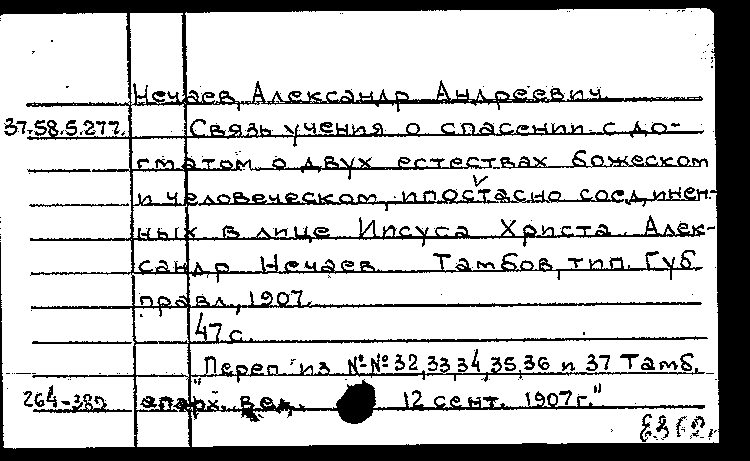 Нечаев, Александр Андреевич.
37.58.5.277. Связь учения о спасении с до-
гматом о двух естествах божеском
и человеческом, ипостасно соединен-
ных в лице Иисуса Христа. Алек-
сандр Нечаев. Тамбов, тип. Губ.
правл., 1907.
47 с.
"Переп. из №№ 32, 33, 34, 35, 36 и 37 Тамб.
епарх. вед. 12 сент. 1907 г."